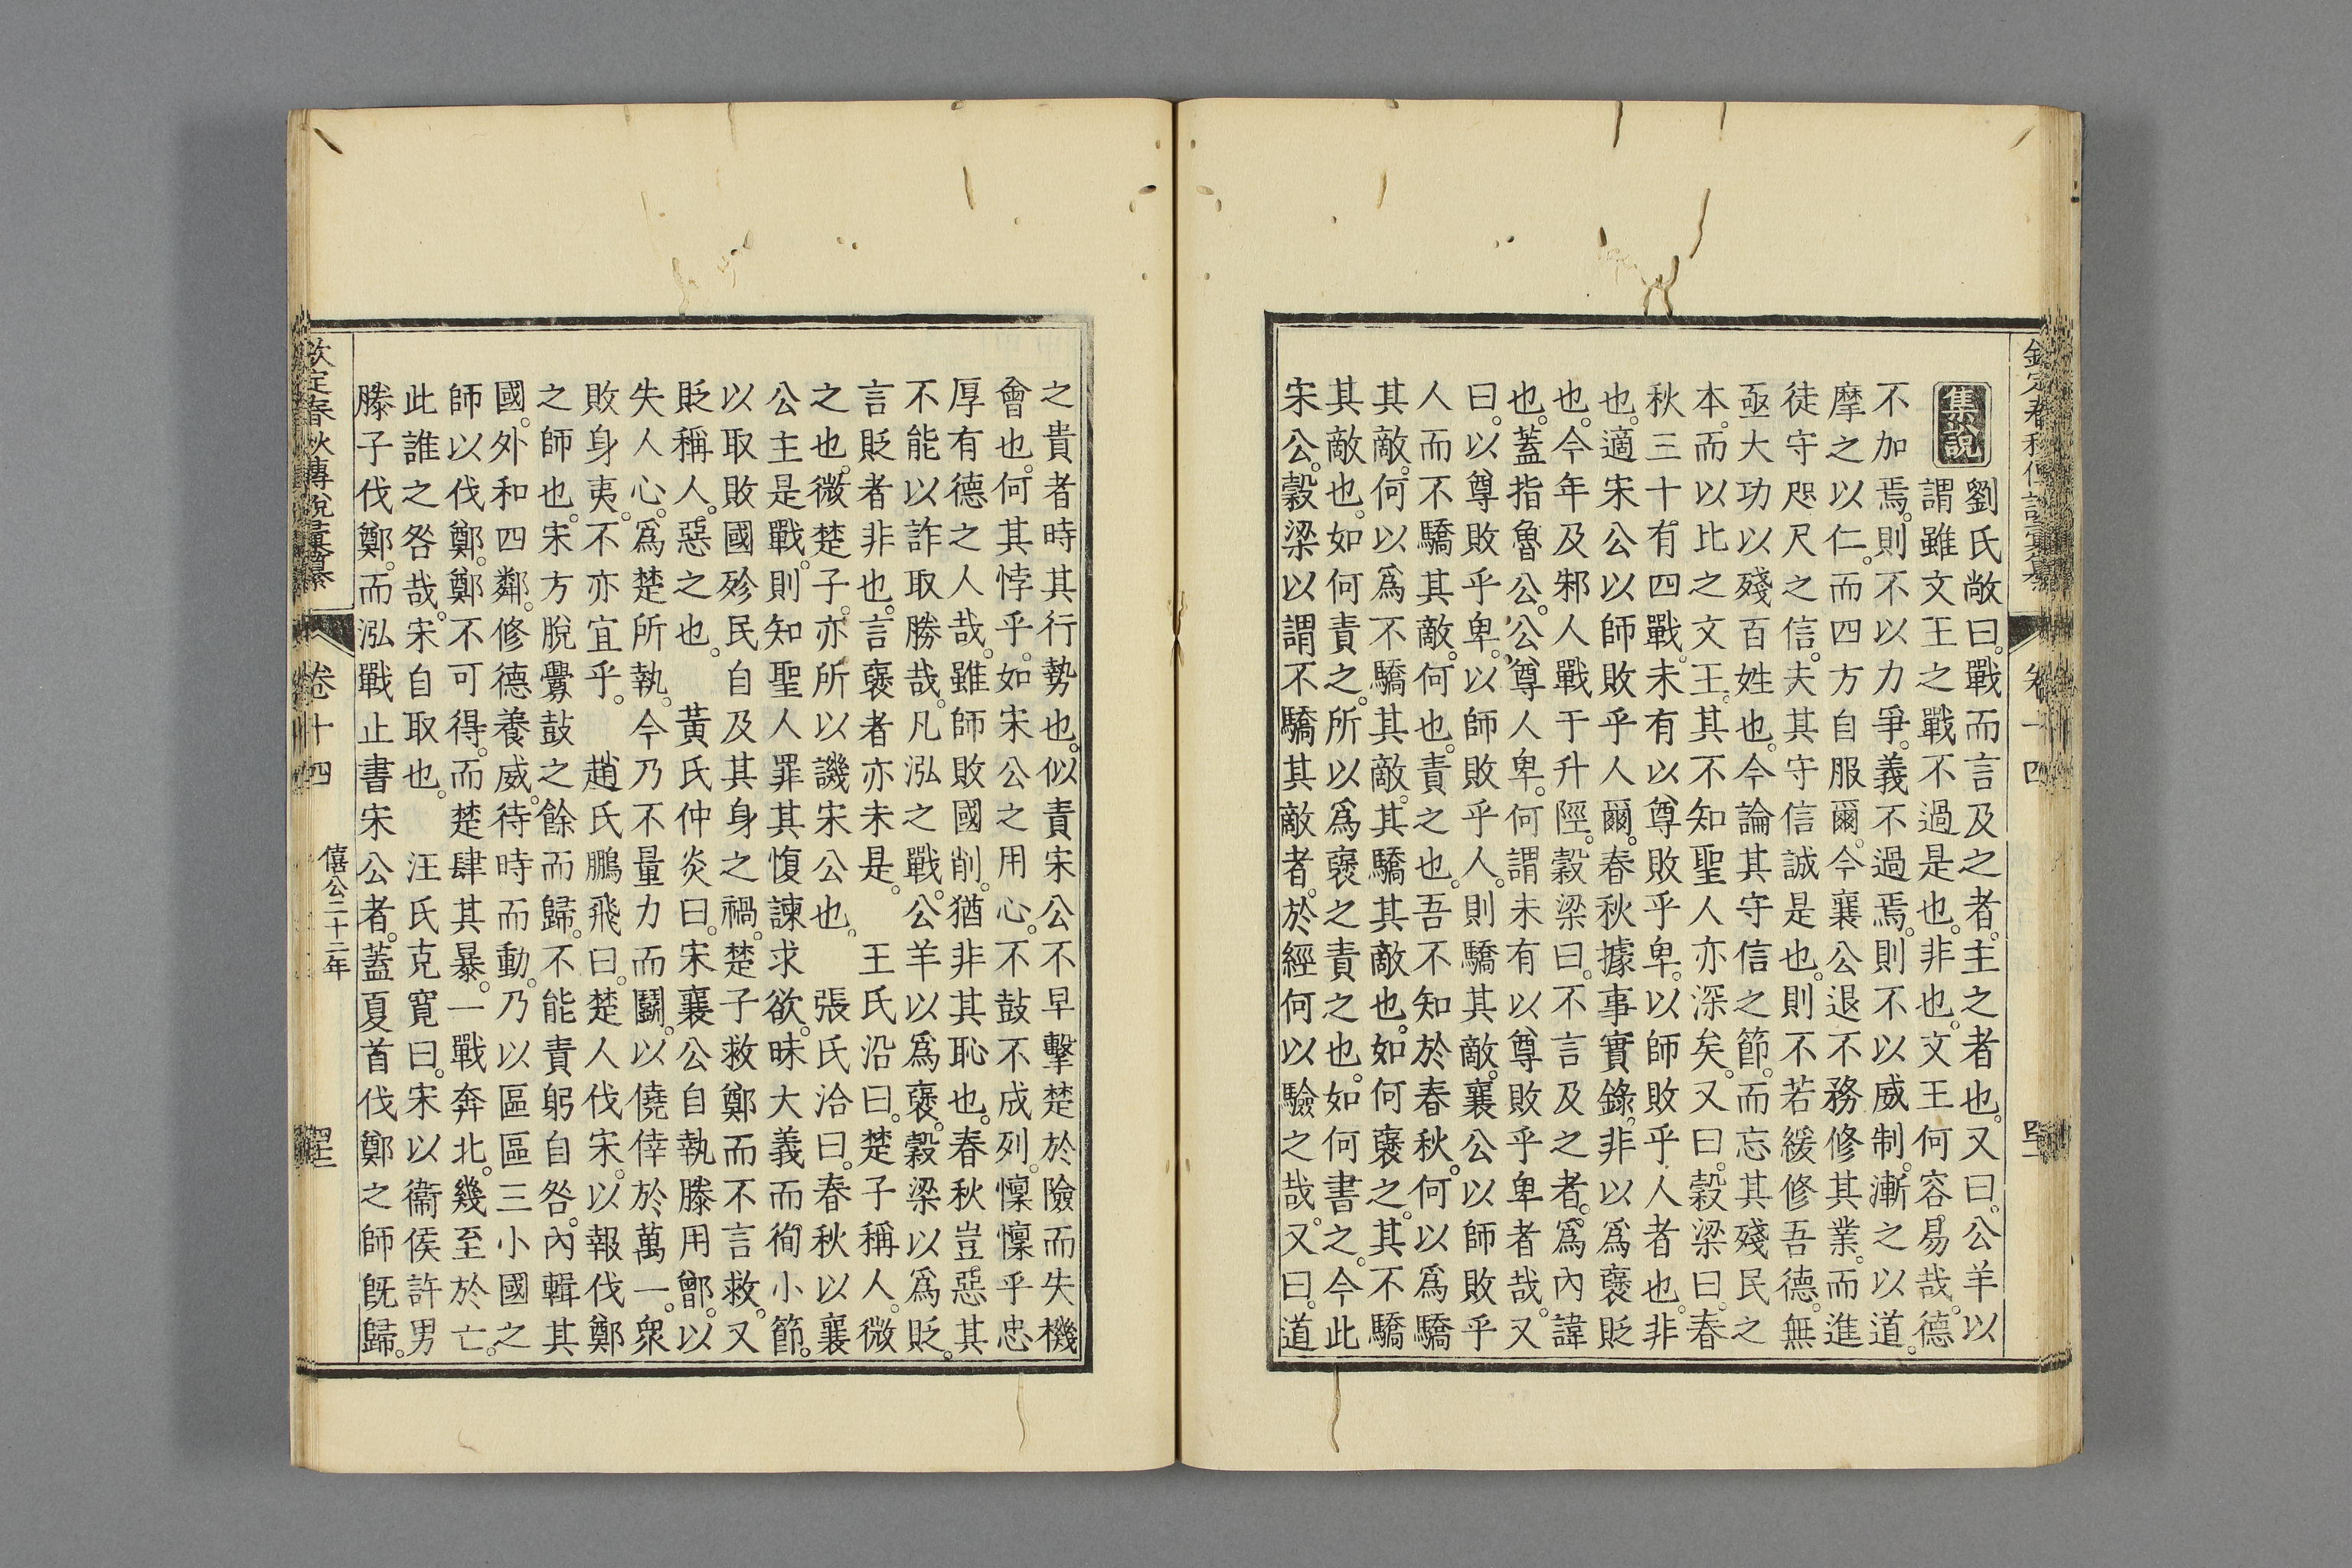 集說
劉氏敞曰。戰而言及之者。主之者也。又曰。公羊以
謂雖文王之戰不過是也。非也。文王何容易哉。德
不加焉。則不以力爭。義不過焉。則不以威制。漸之以道。
摩之以仁。而四方自服爾。今襄公退不務修其業。而進
徒守咫尺之信。夫其守信誠是也。則不若緩修吾德。無
亟大功以殘百姓也。今論其守信之節。而忘其殘民之
本。而以比之文王。其不知聖人亦深矣。又曰。穀梁曰。春
秋三十有四戰。未有以尊敗乎卑。以師敗乎人者也。非
也。適宋公以師敗乎人爾。春秋據事實錄。非以爲褒貶
也。今年及邾人戰于升陘。穀梁曰。不言及之者。爲內諱
也。蓋指魯公。公尊人卑。何謂未有以尊敗乎卑者哉。又
曰。以尊敗乎卑。以師敗乎人。則驕其敵。襄公以師敗乎
人而不驕其敵。何也。責之也。吾不知於春秋。何以爲驕
其敵。何以爲不驕其敵。其驕其敵也。如何襃之。其不驕
其敵也。如何責之。所以爲襃之責之也。如何書之。今此
宋公。穀梁以謂不驕其敵者。於經何以驗之哉。又曰。道
之貴者時其行勢也。似責宋公不早擊楚於險而失機
會也。何其悖乎。如宋公之用心。不鼓不成列。懍懍乎忠
厚有德之人哉。雖師敗國削。猶非其恥也。春秋豈惡其
不能以詐取勝哉。凡泓之戰。公羊以爲襃。穀梁以爲貶。
言貶者非也。言襃者亦未是。 王氏沿曰。楚子稱人。微
之也。微楚子。亦所以譏宋公也。 張氏洽曰。春秋以襄
公主是戰。則知聖人罪其愎諫求欲。昧大義而徇小節。
以取敗國殄民自及其身之禍。楚子救鄭而不言救。又
貶稱人。惡之也。 黃氏仲炎曰。宋襄公自執滕用鄫。以
失人心。爲楚所執。今乃不量力而鬭。以僥倖於萬一。衆
敗身夷。不亦宜乎。 趙氏鵬飛曰。楚人伐宋。以報伐鄭
之師也。宋方脫釁鼓之餘而歸。不能責躬自咎。內輯其
國。外和四鄰。修德養威。待時而動。乃以區區三小國之
師以伐鄭。鄭不可得。而楚肆其暴。一戰奔北。幾至於亡。
此誰之咎哉。宋自取也。 汪氏克寬曰。宋以衞侯許男
滕子伐鄭。而泓戰止書宋公者。蓋夏首伐鄭之師既歸。
欽定春秋傳說彙纂 卷十四 僖公二十二年